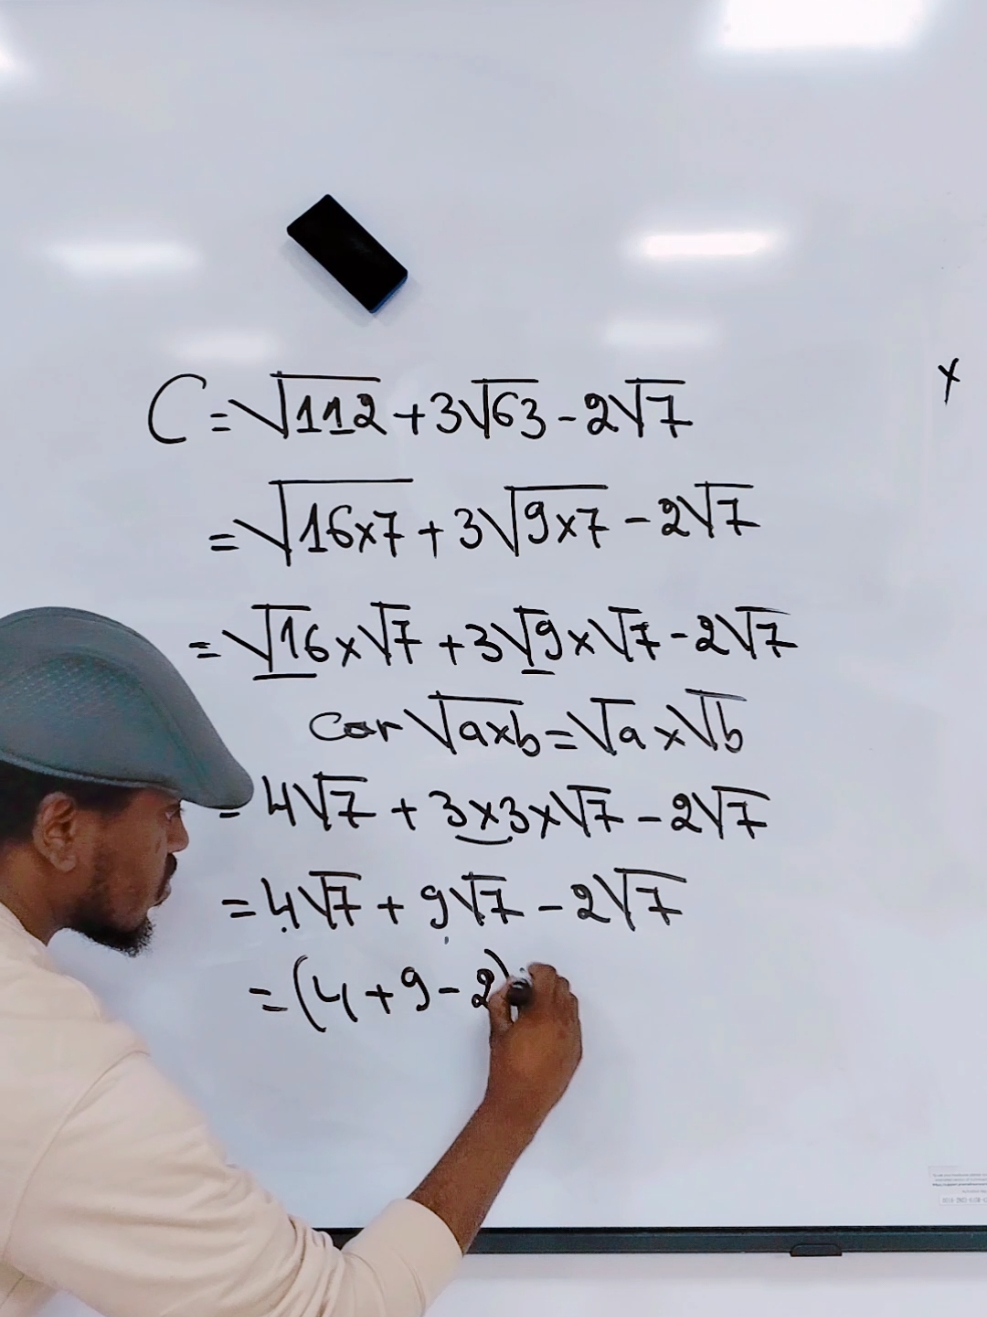 C = √112 + 3√63 - 2√7
= √16x7 + 3√9x7 - 2√7
= √16 x √7 + 3√9 x √7 - 2√7
car √axb = √a x √b
= 4√7 + 3x3x√7 - 2√7
= 4√7 + 9√7 - 2√7
= (4 + 9 - 2)
x